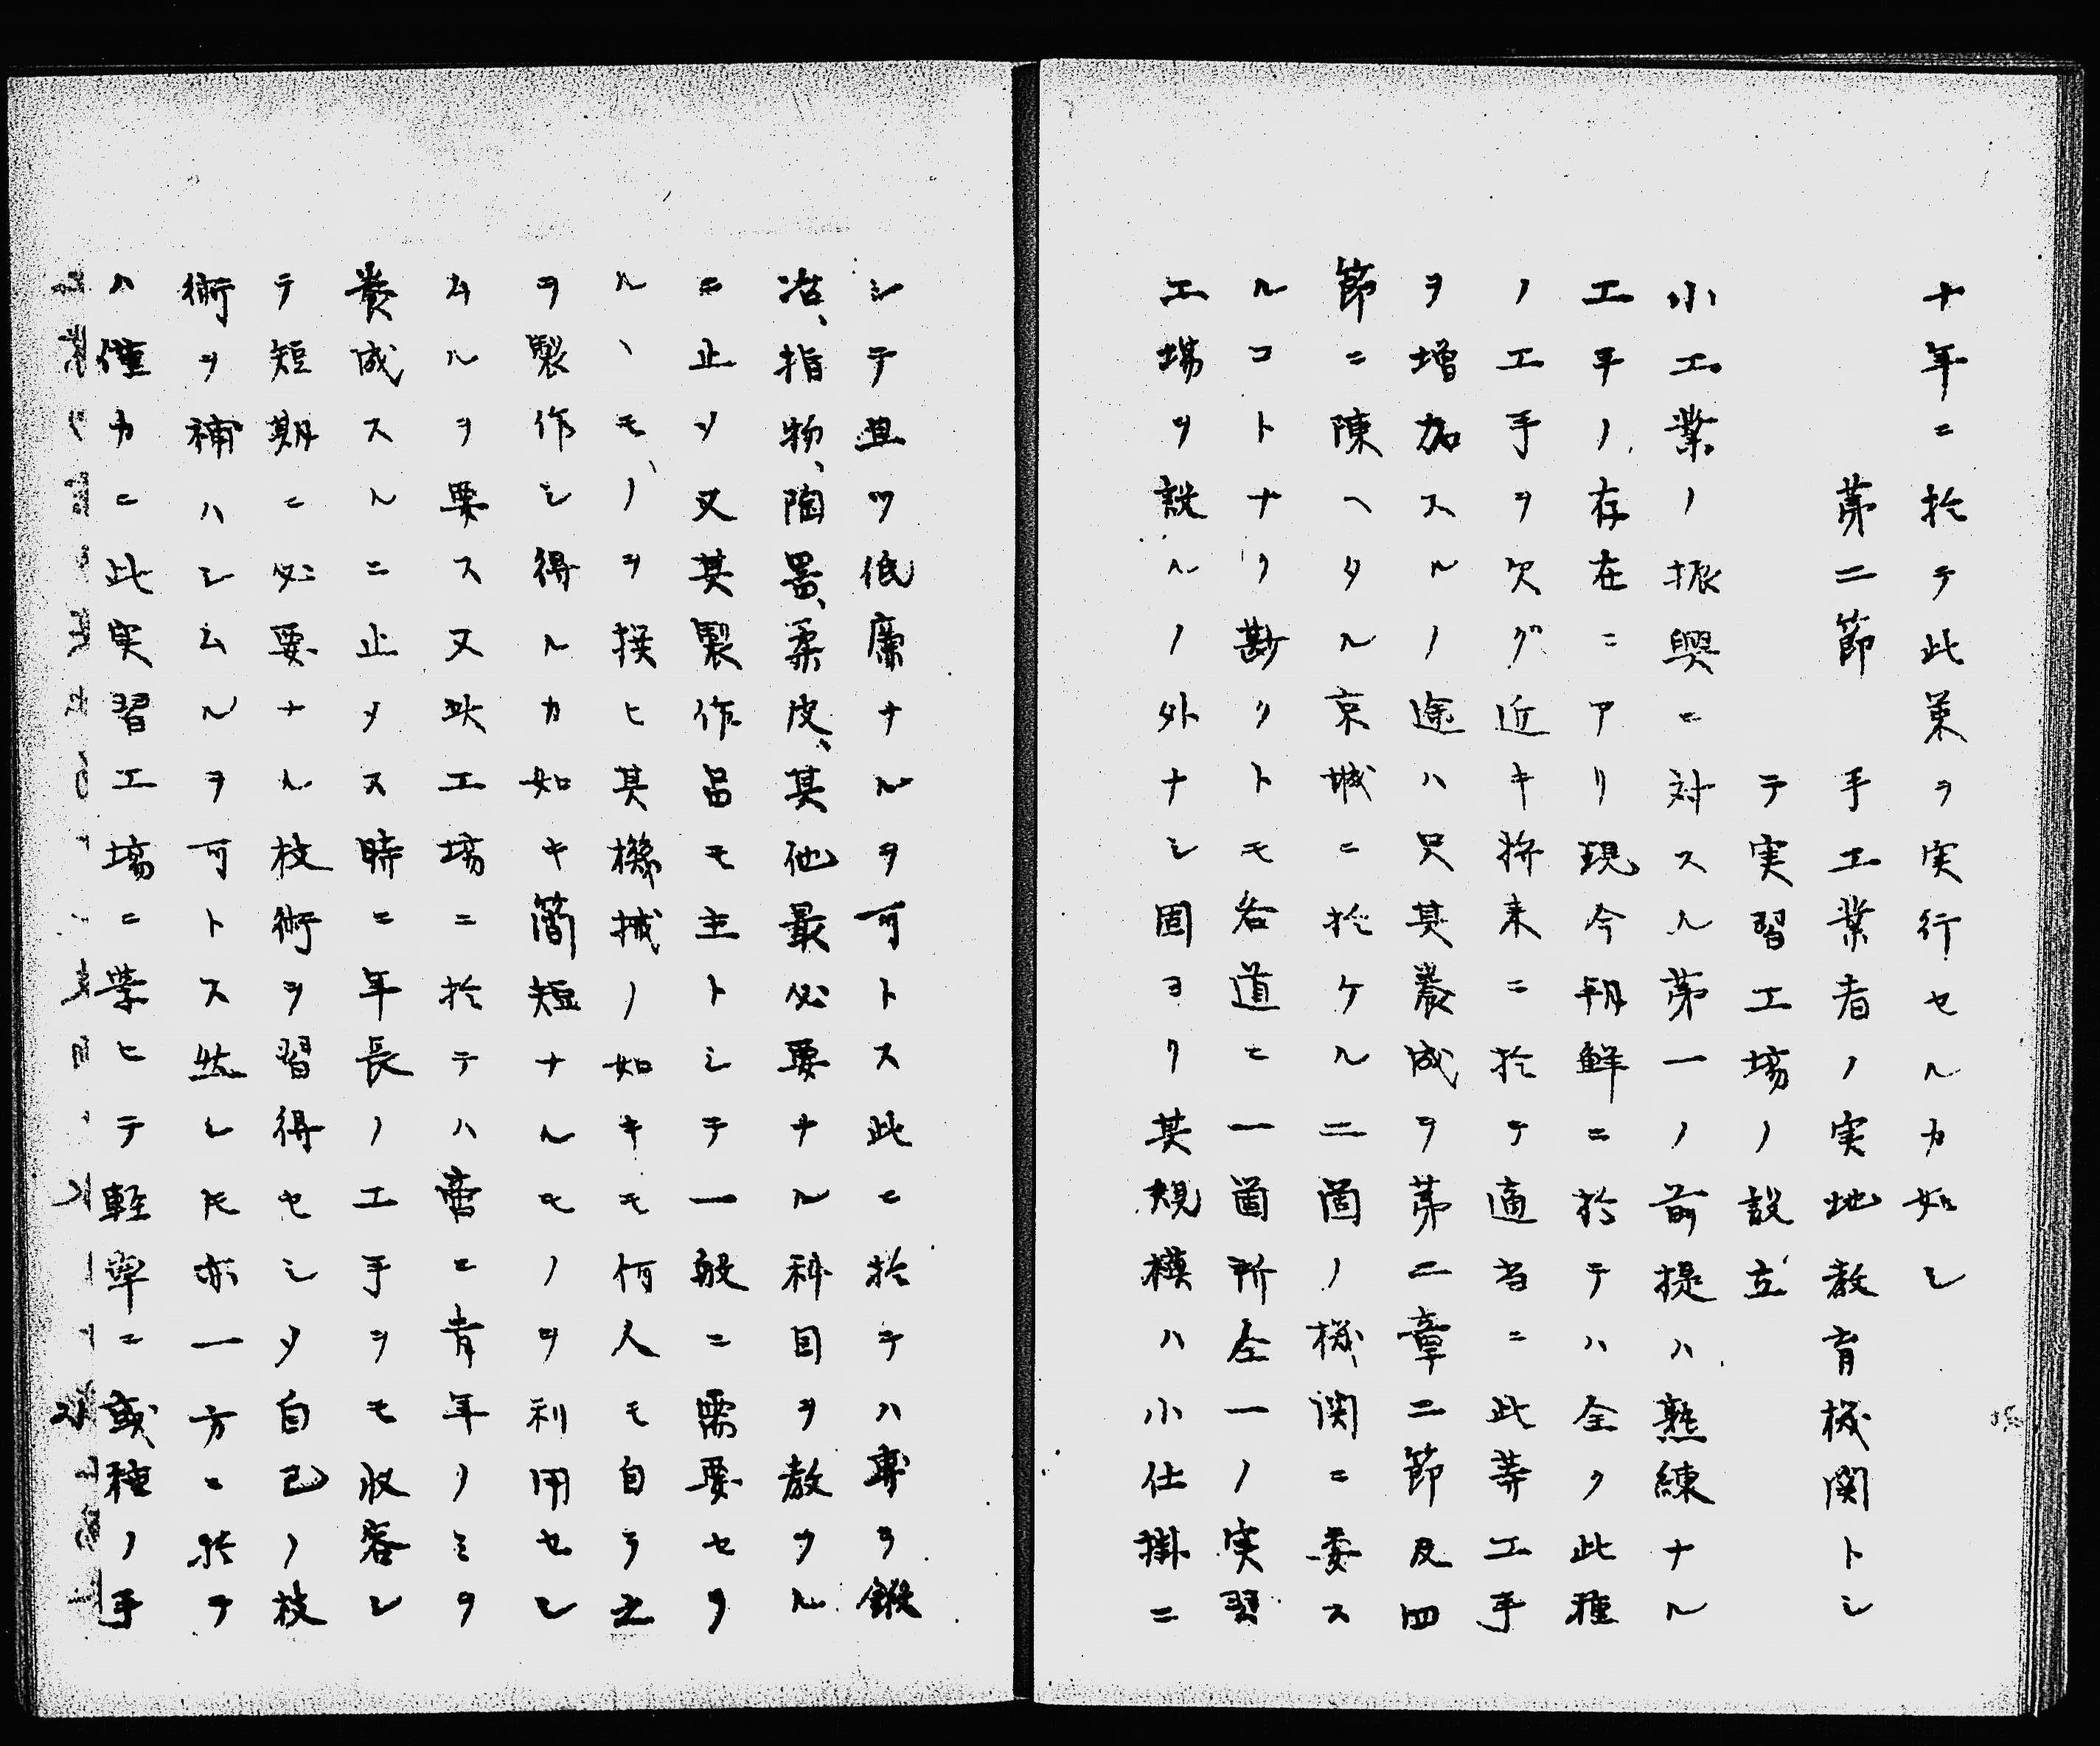 十年ニ於テ此策ヲ実行セルカ如シ
第二節　手工業者ノ実地教育機関トシ
テ実習工場ノ設立
小工業ノ振興ニ対スル第一ノ前提ハ熟練ナル
工手ノ存在ニアリ現今朝鮮ニ於テハ全ク此種
ノ工手ヲ欠グ近キ将来ニ於テ適当ニ此等工手
ヲ増加スルノ途ハ只其養成ヲ第二章二節及四
節ニ陳ヘタル京城ニ於ケル二箇ノ機関ニ委ス
ルコトナリ尠クトモ各道ニ一箇所仝一ノ実習
工場ヲ設ルノ外ナシ固ヨリ其規模ハ小仕掛ニ
シテ且ツ低廉ナルヲ可トス此ニ於テハ専ラ鍛
冶、指物、陶器、柔皮、其他最必要ナル科目ヲ教ウル
ニ止メ又其製作品モ主トシテ一般ニ需要セラ
ルヽモノヲ撰ヒ其機械ノ如キモ何人モ自ラ之
ヲ製作シ得ルカ如キ簡短ナルモノヲ利用セシ
ムルヲ要ス又此工場ニ於テハ啻ニ青年ノミヲ
養成スルニ止メス時ニ年長ノ工手ヲモ収容シ
テ短期ニ必要ナル技術ヲ習得セシメ自己ノ技
術ヲ補ハシムルヲ可トス然レ𪜈亦一方ニ於テ
ハ僅カニ此実習工場ニ学ヒテ軽率ニ或種ノ手